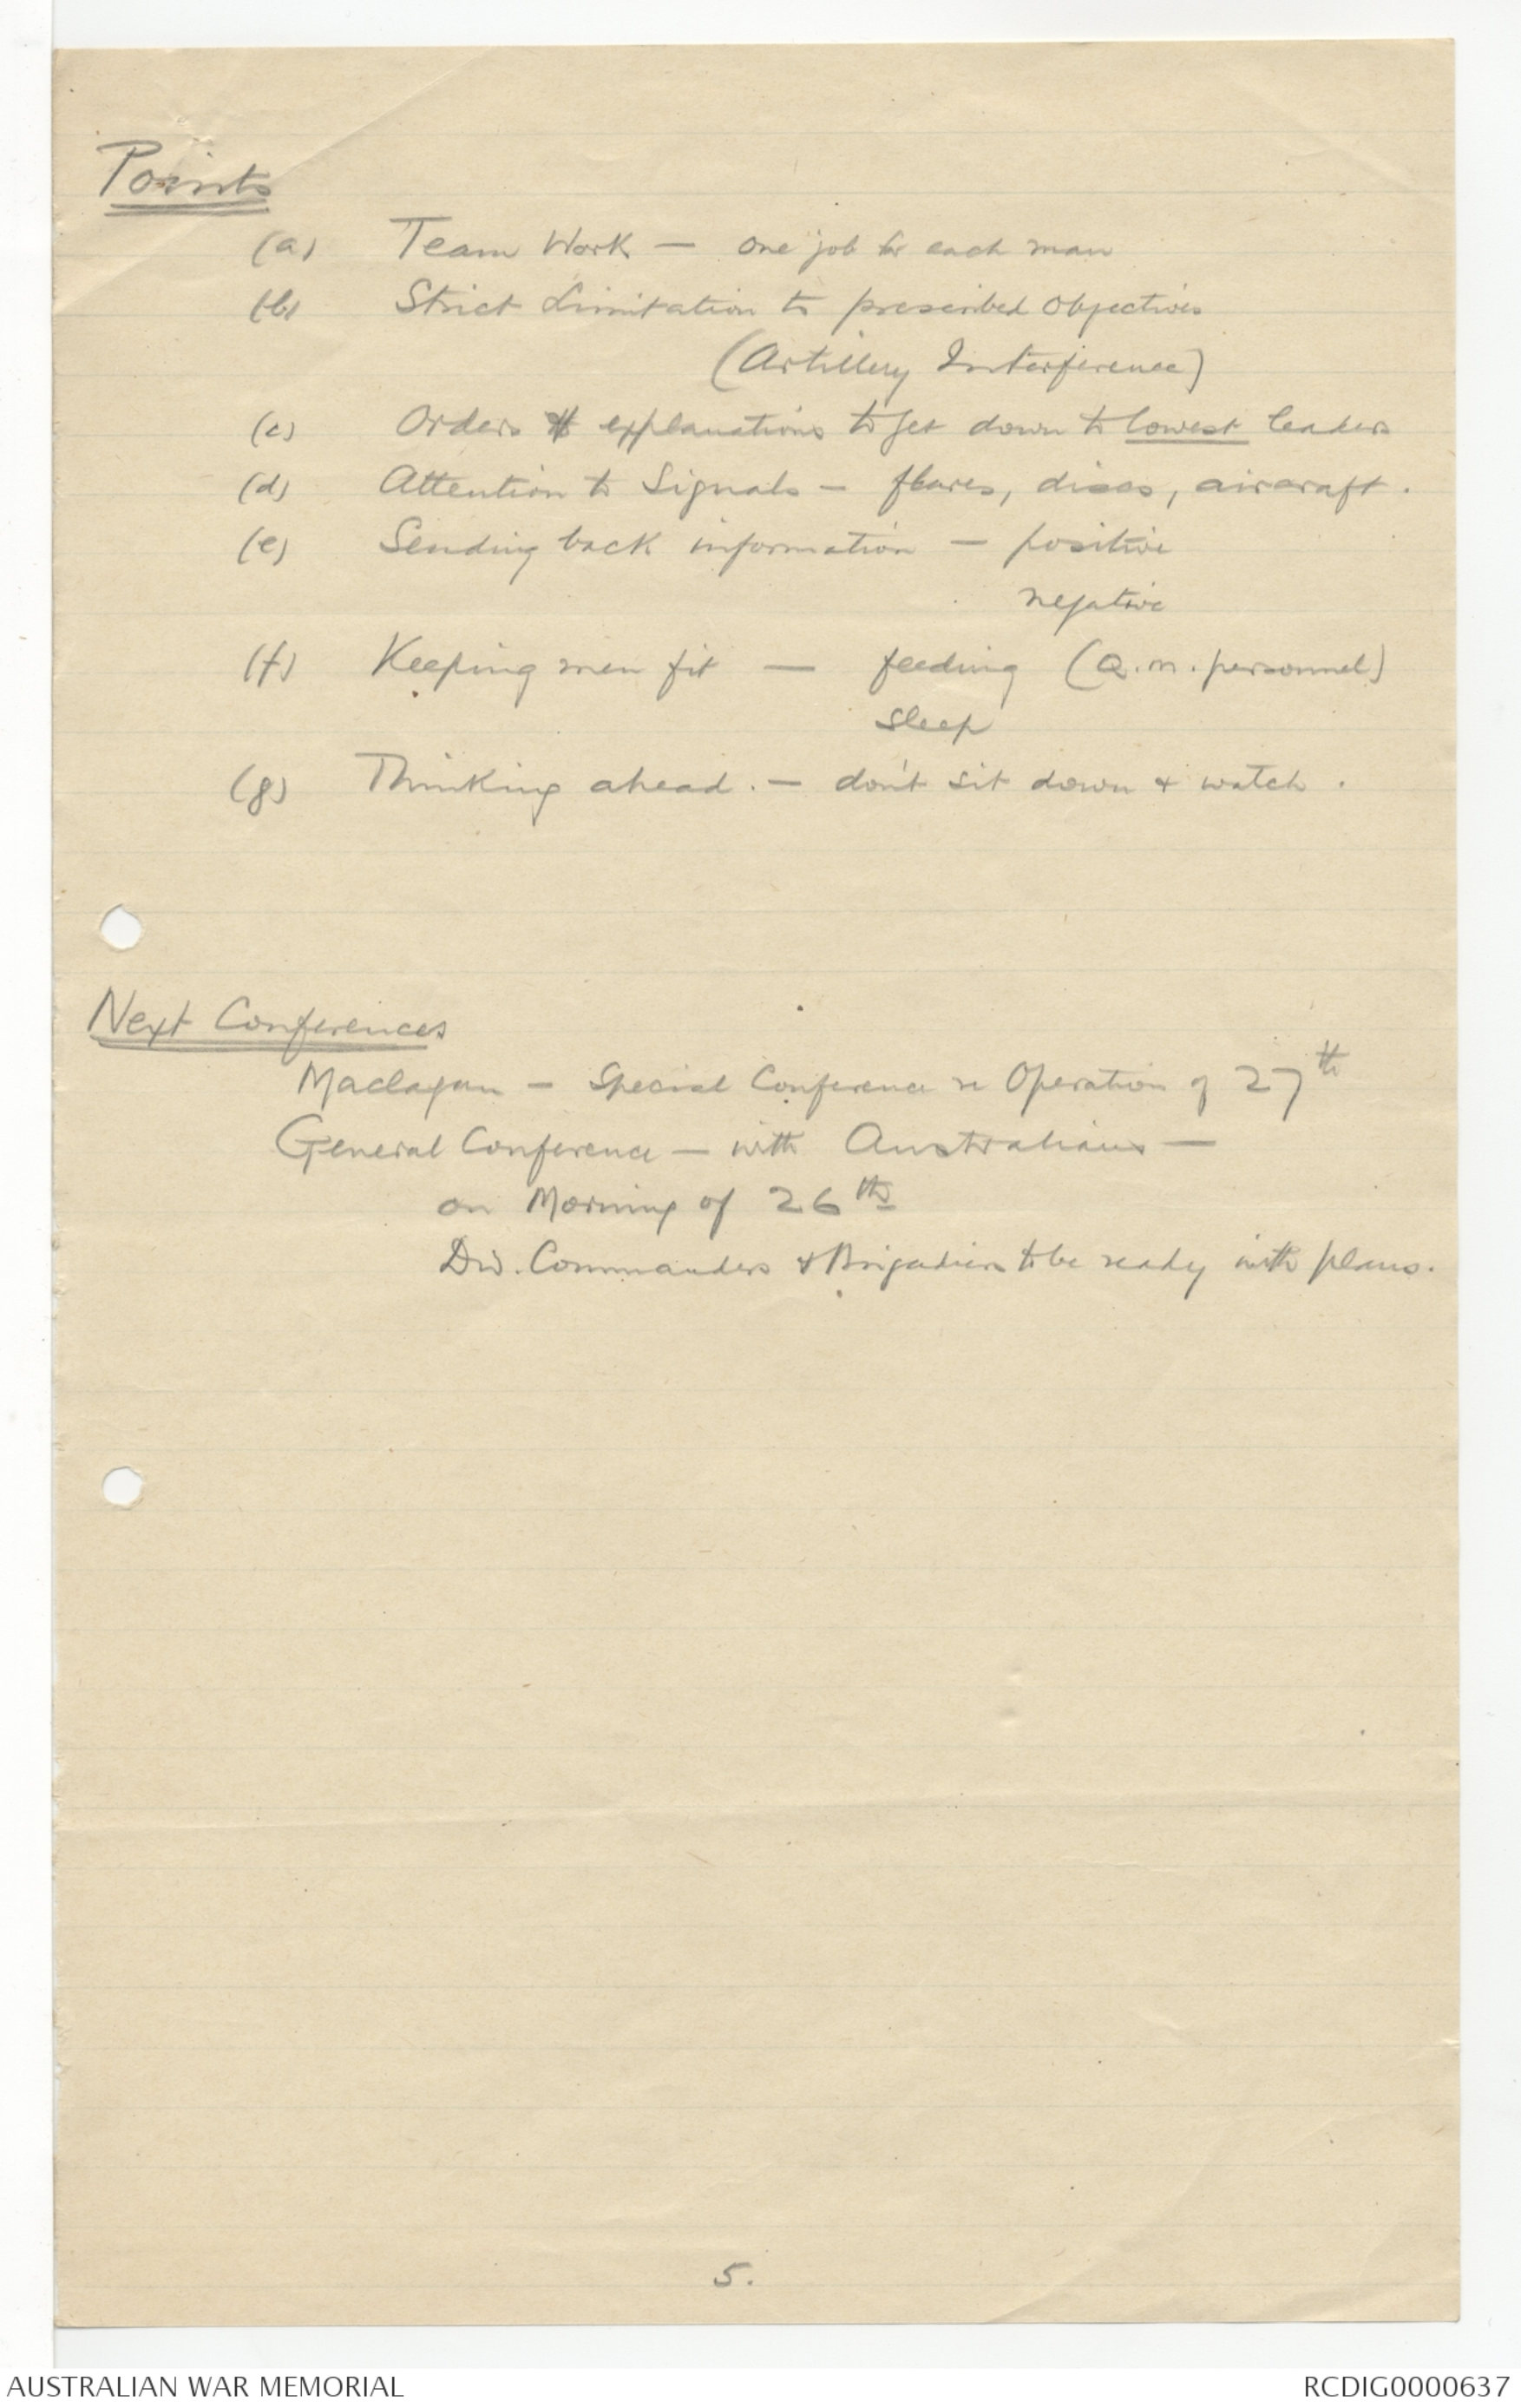 Points
(a) Team Work — one job for each man
(b) Strict Limitation to prescribed Objectives
(Artillery Interference)
(c) Orders & explanations to get down to lowest leaders
(d) Attention to Signals — flares, discs, aircraft.
(e) Sending back information — positive
negative
(f) Keeping men fit — feeding (Q.M. personnel)
sleep
(g) Thinking ahead. — don't sit down & watch.
Next Conferences
Maclagan — Special Conference re Operation of 27th
General Conference — with Australians —
on Morning of 26th
Div. Commanders & Brigadiers to be ready with plans.
5.
AUSTRALIAN WAR MEMORIAL
RCDIG0000637